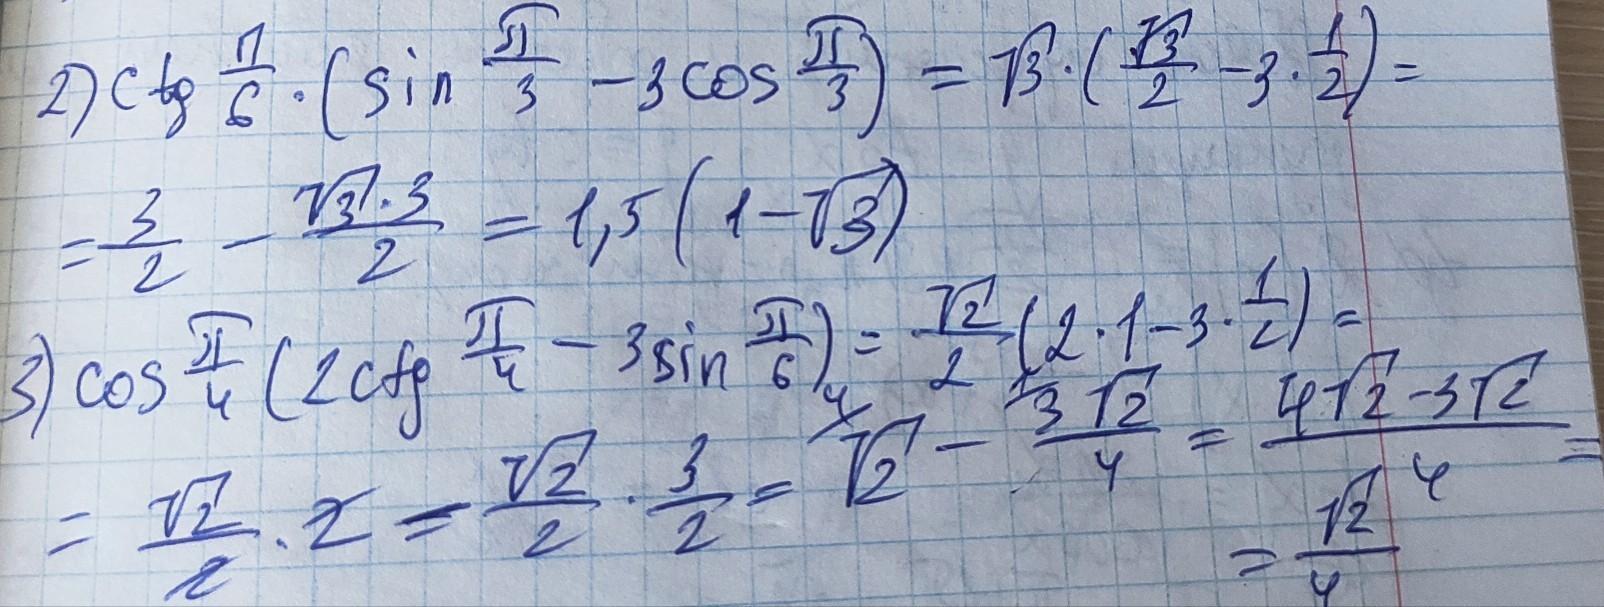 2) ctg π/6 · (sin π/3 − 3 cos π/3) = √3 · (√3/2 − 3 · 1/2) =
= 3/2 − √3 · 3/2 = 1,5 (1 − √3)
3) cos π/4 (2 ctg π/4 − 3 sin π/6) = √2/2 (2 · 1 − 3 · 1/2) =
= √2/2 · 2 − √2/2 · 3/2 = √2 − 3√2/4 = 4√2 − 3√2/4 =
= √2/4